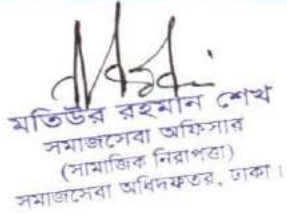 মতিউর রহমান শেখ
সমাজসেবা অফিসার
(সামাজিক নিরাপত্তা)
সমাজসেবা অধিদফতর, ঢাকা।